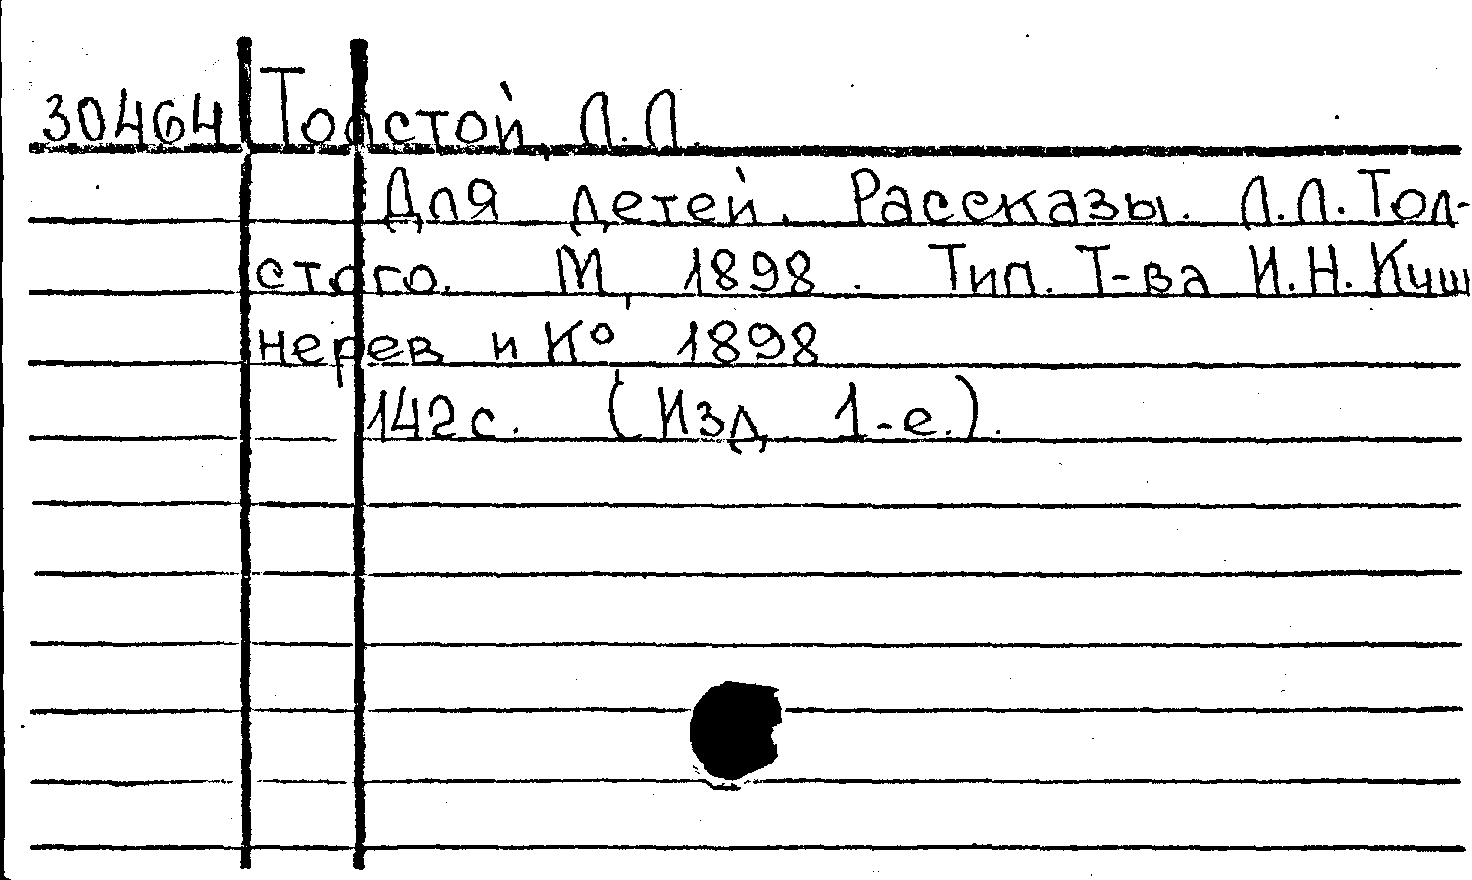 30464 Толстой, Л.Л.
Для детей. Рассказы. Л.Л.Тол-
стого. М, 1898. Тип. Т-ва И.Н.Куш
нерев и К° 1898
142с. (Изд 1-е.).